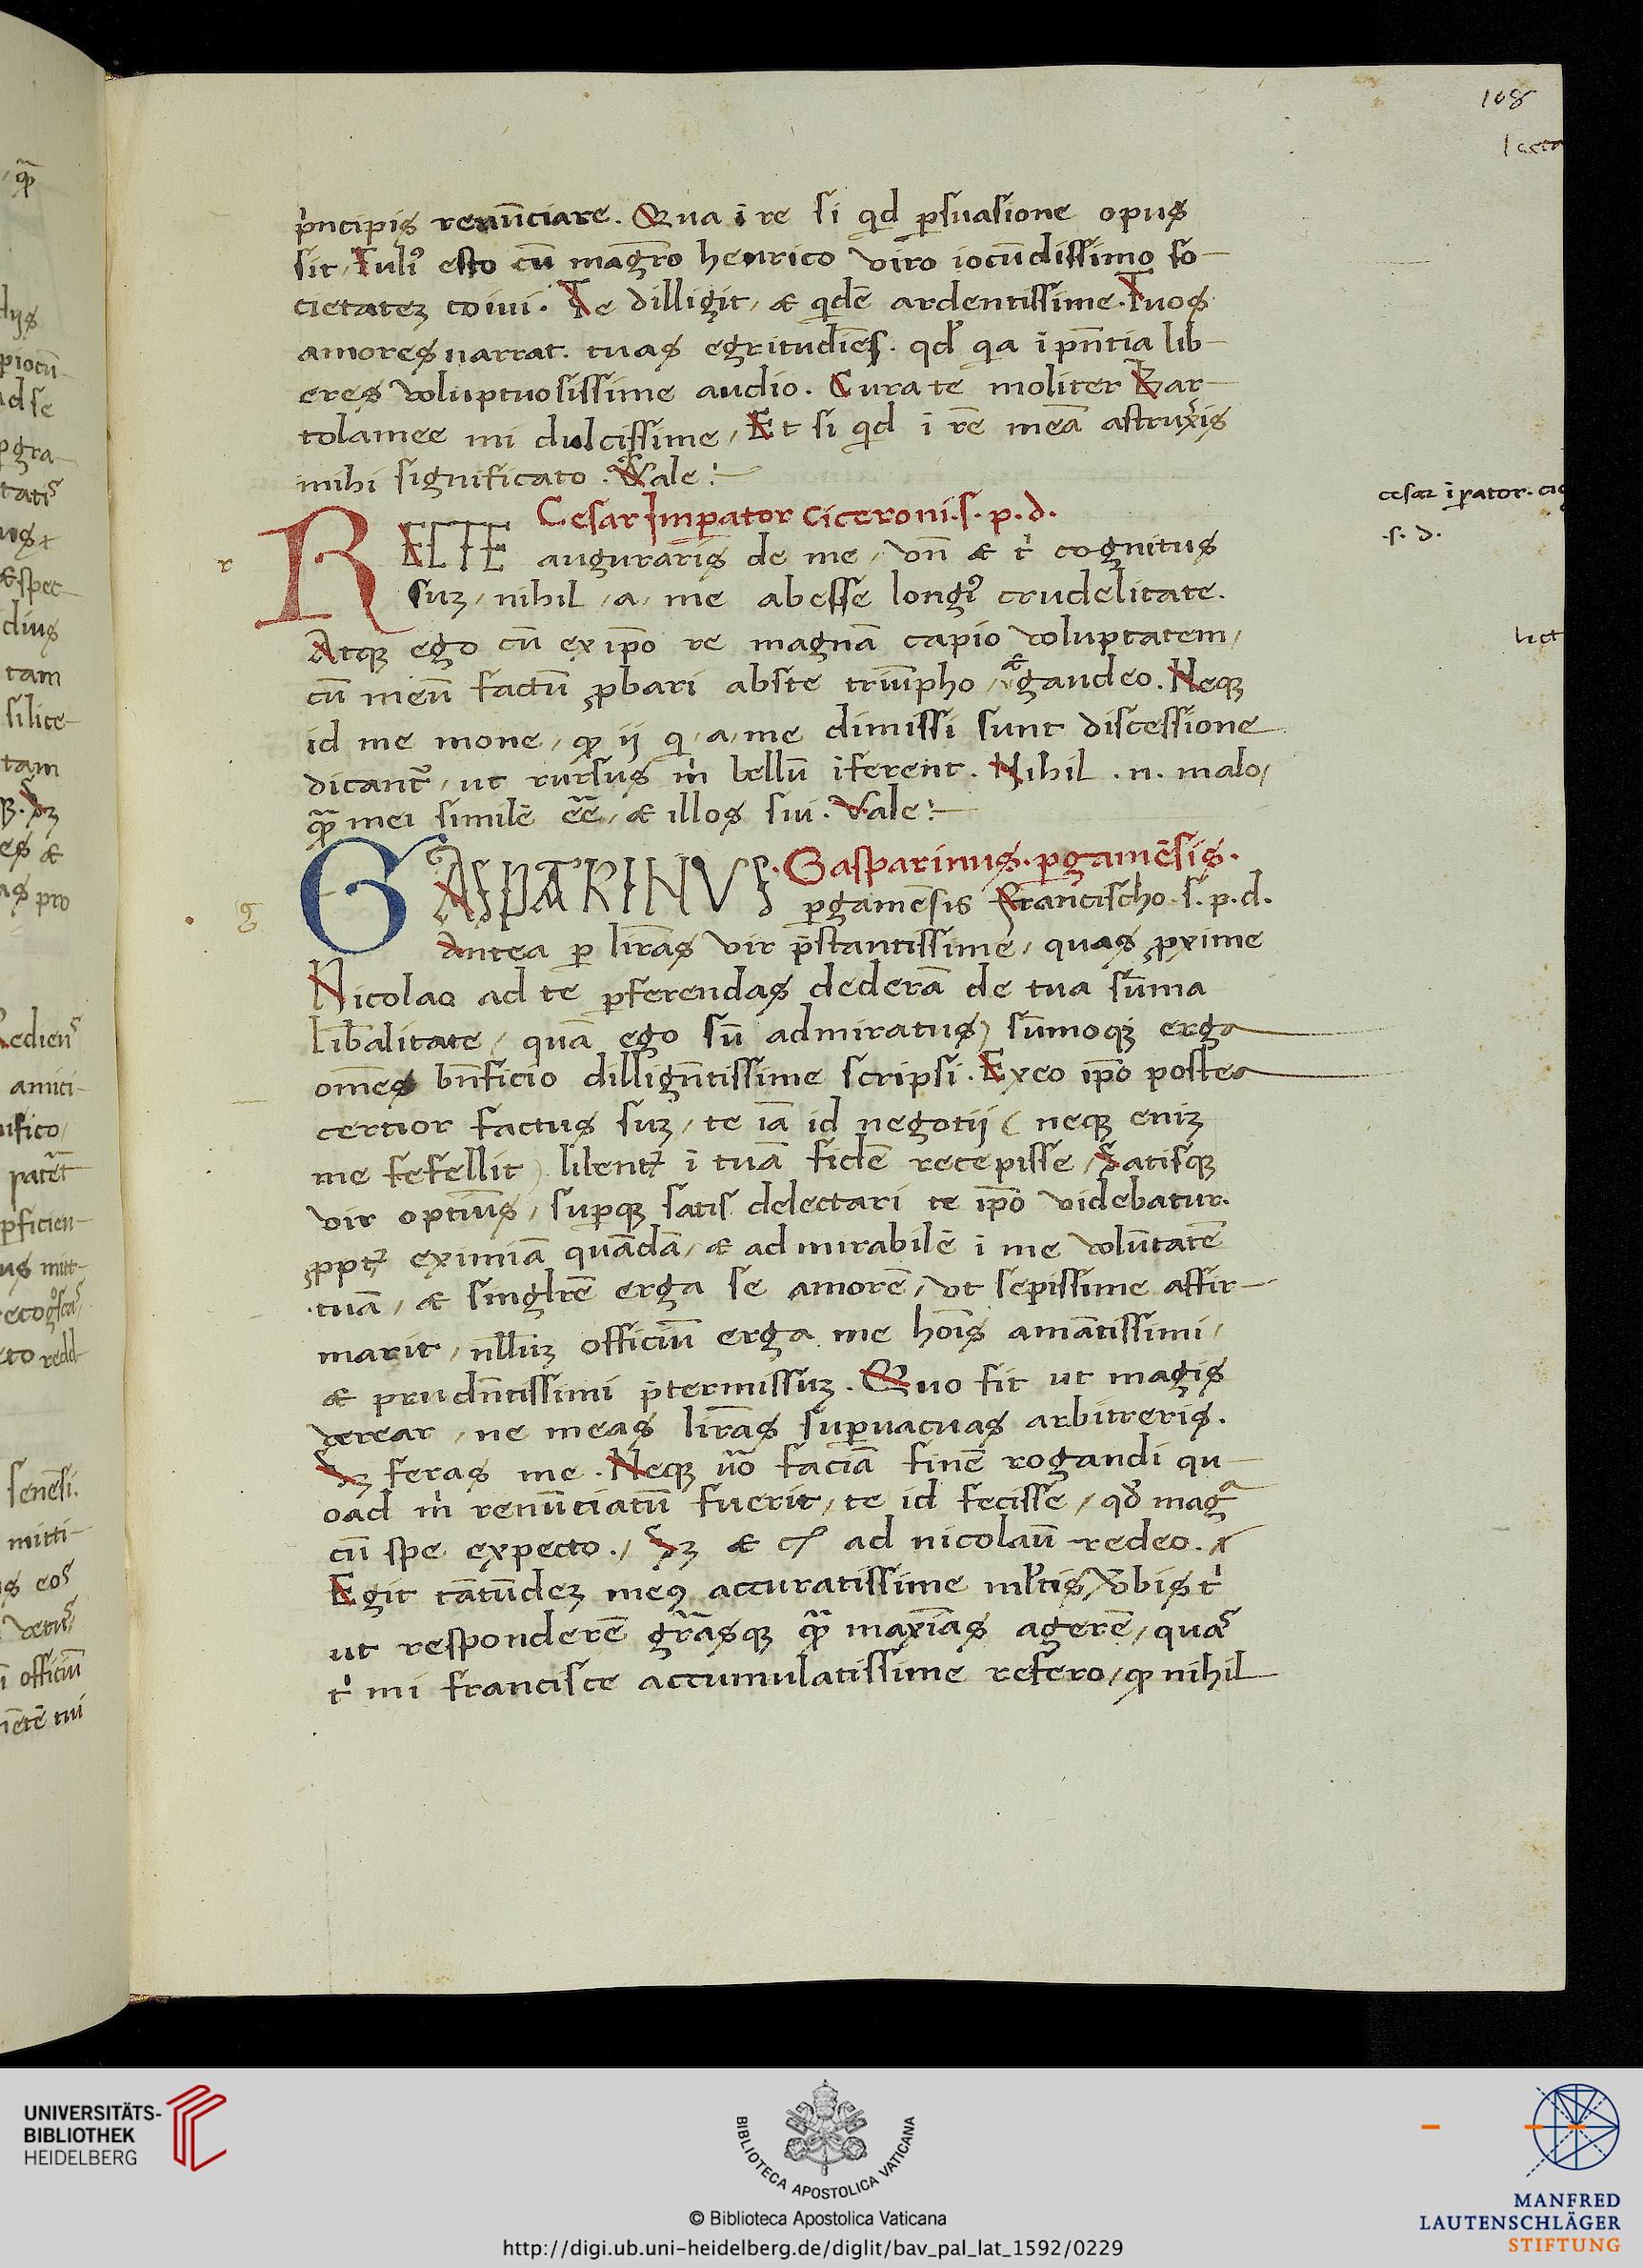 108
p̓ncipis renūciare. Qua ī re si qd ꝑsuasione opus
sit, Iuliꝰ esto cū magr̄o henrico viro iocūdissimo so-
cietateʒ coiui. Te dilligit, & qdē ardentissime. Tuos
amores narrat. tuas egritudīes. qd̓ qa ī pn̄tia lib-
eres voluptuosissime audio. Cura te moliter Bar-
tolamee mi dulcissime, Et si qd ī rē meā astrux̓is
mihi significato. Vale:-
Cesar Imꝑator Ciceroni. s. p. d.
cesar īꝑator.
.s. d.
RECTE auguraris de me, vn̄ & t̓ cognitus
r
suʒ, nihil, a, me abesse longiꝰ crudelitate.
Atqꝫ ego cū ex ip̄o re magnā capio voluptatem,
cū meū factū ꝓbari abste triūpho, & gaudeo. Neqꝫ
id me mone, ꝙ ii q, a, me dimissi sunt discessione
dicant̓, ut rursus m̓ bellū īferent. Nihil .n. malo,
qꝫ̄ mei similē eē̄, & illos sui. Vale:-
GASPARINVS . Gasparinus. ꝑgamēsis.
g
ꝑgamēsis Francischo. s. p. d.
Antea ꝑ lr̄as vir p̄stantissime, quas ꝓxime
Nicolao ad te ꝑferendas dederā de tua sūma
lib̄alitate, quā ego sū admiratus, sūmoqꝫ erga
om̄es bn̄ficio dillign̄tissime scripsi. Ex eo ip̄o postea
certior factus suʒ, te iā id negotii (neqꝫ eniʒ
me fefellit) libent̓ ī tuā fidē recepisse, Satisqꝫ
vir optimꝰ, suꝑqꝫ satis delectari te ip̄o videbatur.
ꝓpt̓ eximiā quādā, & admirabilē ī me volūtatē
tuā, & singlr̄ē erga se amorē, vt sepissime affir-
marit, nll̄uʒ officiū erga me hoīs amātissimi,
& prudn̄tissimi p̄termissuʒ. Quo fit ut magis
verear, ne meas lr̄as suꝑuacuas arbitreris.
Sʒ feras me. Neqꝫ v̄o faciā finē rogandi qu-
oad m̓ renūciatū fuerit, te id fecisse, qd̓ magᵃ
cū spe expecto., Sʒ & ad nicolaū redeo.
Egit tātūdeʒ mecꝰ accuratissime ml̓tis v̓bis t̓
ut responderē gr̄asqꝫ qꝫ̄ maxīas agerē, quaˢ
t̓ mi francisce accumulatissime refero, ꝙ nihil
UNIVERSITÄTS-
BIBLIOTHEK
HEIDELBERG
BIBLIOTECA APOSTOLICA VATICANA
© Biblioteca Apostolica Vaticana
http://digi.ub.uni-heidelberg.de/diglit/bav_pal_lat_1592/0229
MANFRED
LAUTENSCHLÄGER
STIFTUNG